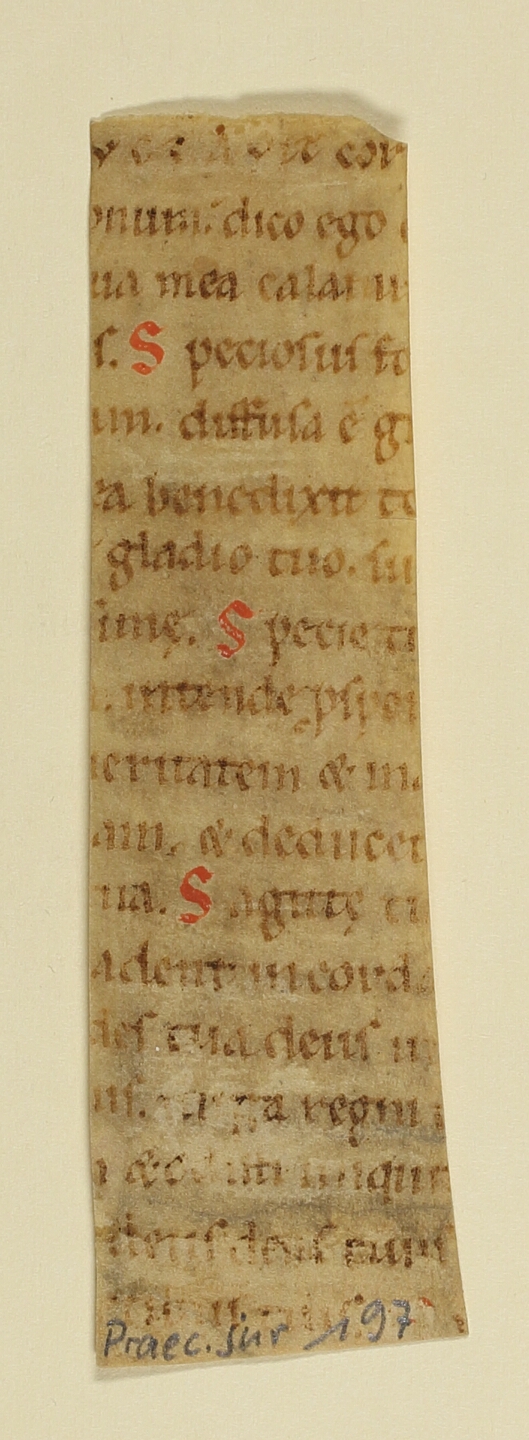 cor
onum. dico ego
ua mea calamu
s. S peciosus fo
um. diffusa ē gr
ea benedixit te
gladio tuo. su
ime̜. S pecie tu
intende ꝓspe
eritatem & ma
am. & deducet
ua. S agitte̜ tu
adent in corda
des tua deus in
us. uirga regni
& odisti iniquit
deus deus tuus
Praec. sur 197